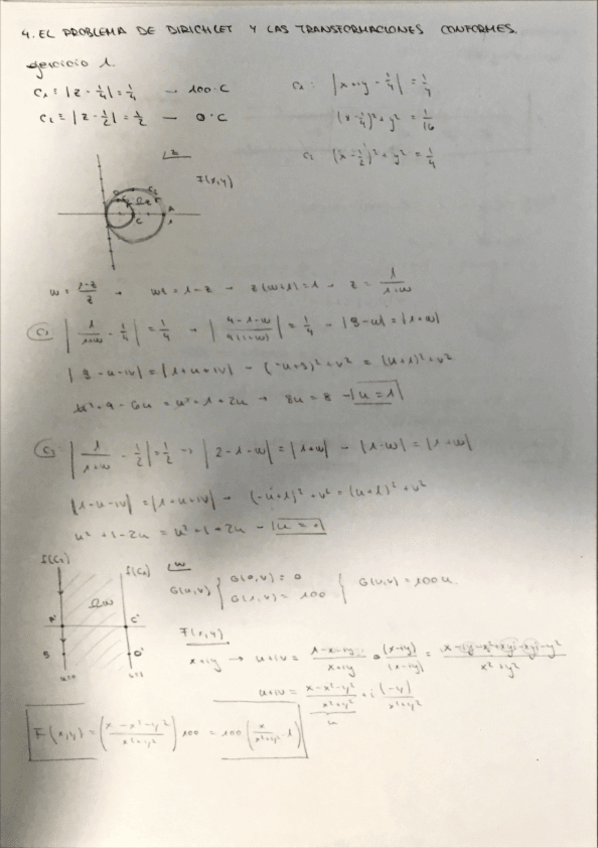 4. EL PROBLEMA DE DIRICHLET Y LAS TRANSFORMACIONES CONFORMES.
ejercicio 1.
C₁ ≡ |z - 1/4| = 1/4 → 100°C
C₁: |x+iy - 1/4| = 1/4
C₂ ≡ |z - 1/2| = 1/2 — 0°C
(x - 1/4)² + y² = 1/16
C₂ (x - 1/2)² + y² = 1/4
z
F(x,y)
w = (1-z)/z → wz = 1-z → z(w+1) = 1 → z = 1/(1+w)
C₁ |1/(1+w) - 1/4| = 1/4 → |(4-1-w)/(4(1+w))| = 1/4 → |3-w| = |1+w|
|3-u-iv| = |1+u+iv| → (-u+3)² + v² = (u+1)² + v²
u² + 9 - 6u = u² + 1 + 2u → 8u = 8 → u = 1
C₂ = |1/(1+w) - 1/2| = 1/2 → |2-1-w| = |1+w| → |1-w| = |1+w|
|1-u-iv| = |1+u+iv| → (-u+1)² + v² = (u+1)² + v²
u² + 1 - 2u = u² + 1 + 2u → u = 0
f(C₂)
f(C₁)
w
Ωw
G(u,v) { G(0,v) = 0
G(1,v) = 100 { G(u,v) = 100u
A' C'
B' D'
F(x,y)
x+iy → u+iv = (1-x-iy)/(x+iy) · (x-iy)/(x-iy) = (x-iy-x²+xyi-xyi-y²)/(x²+y²)
u+iv = (x-x²-y²)/(x²+y²) + i (-y)/(x²+y²)
u
F(x,y) = ((x-x²-y²)/(x²+y²)) 100 = 100 (x/(x²+y²) - 1)